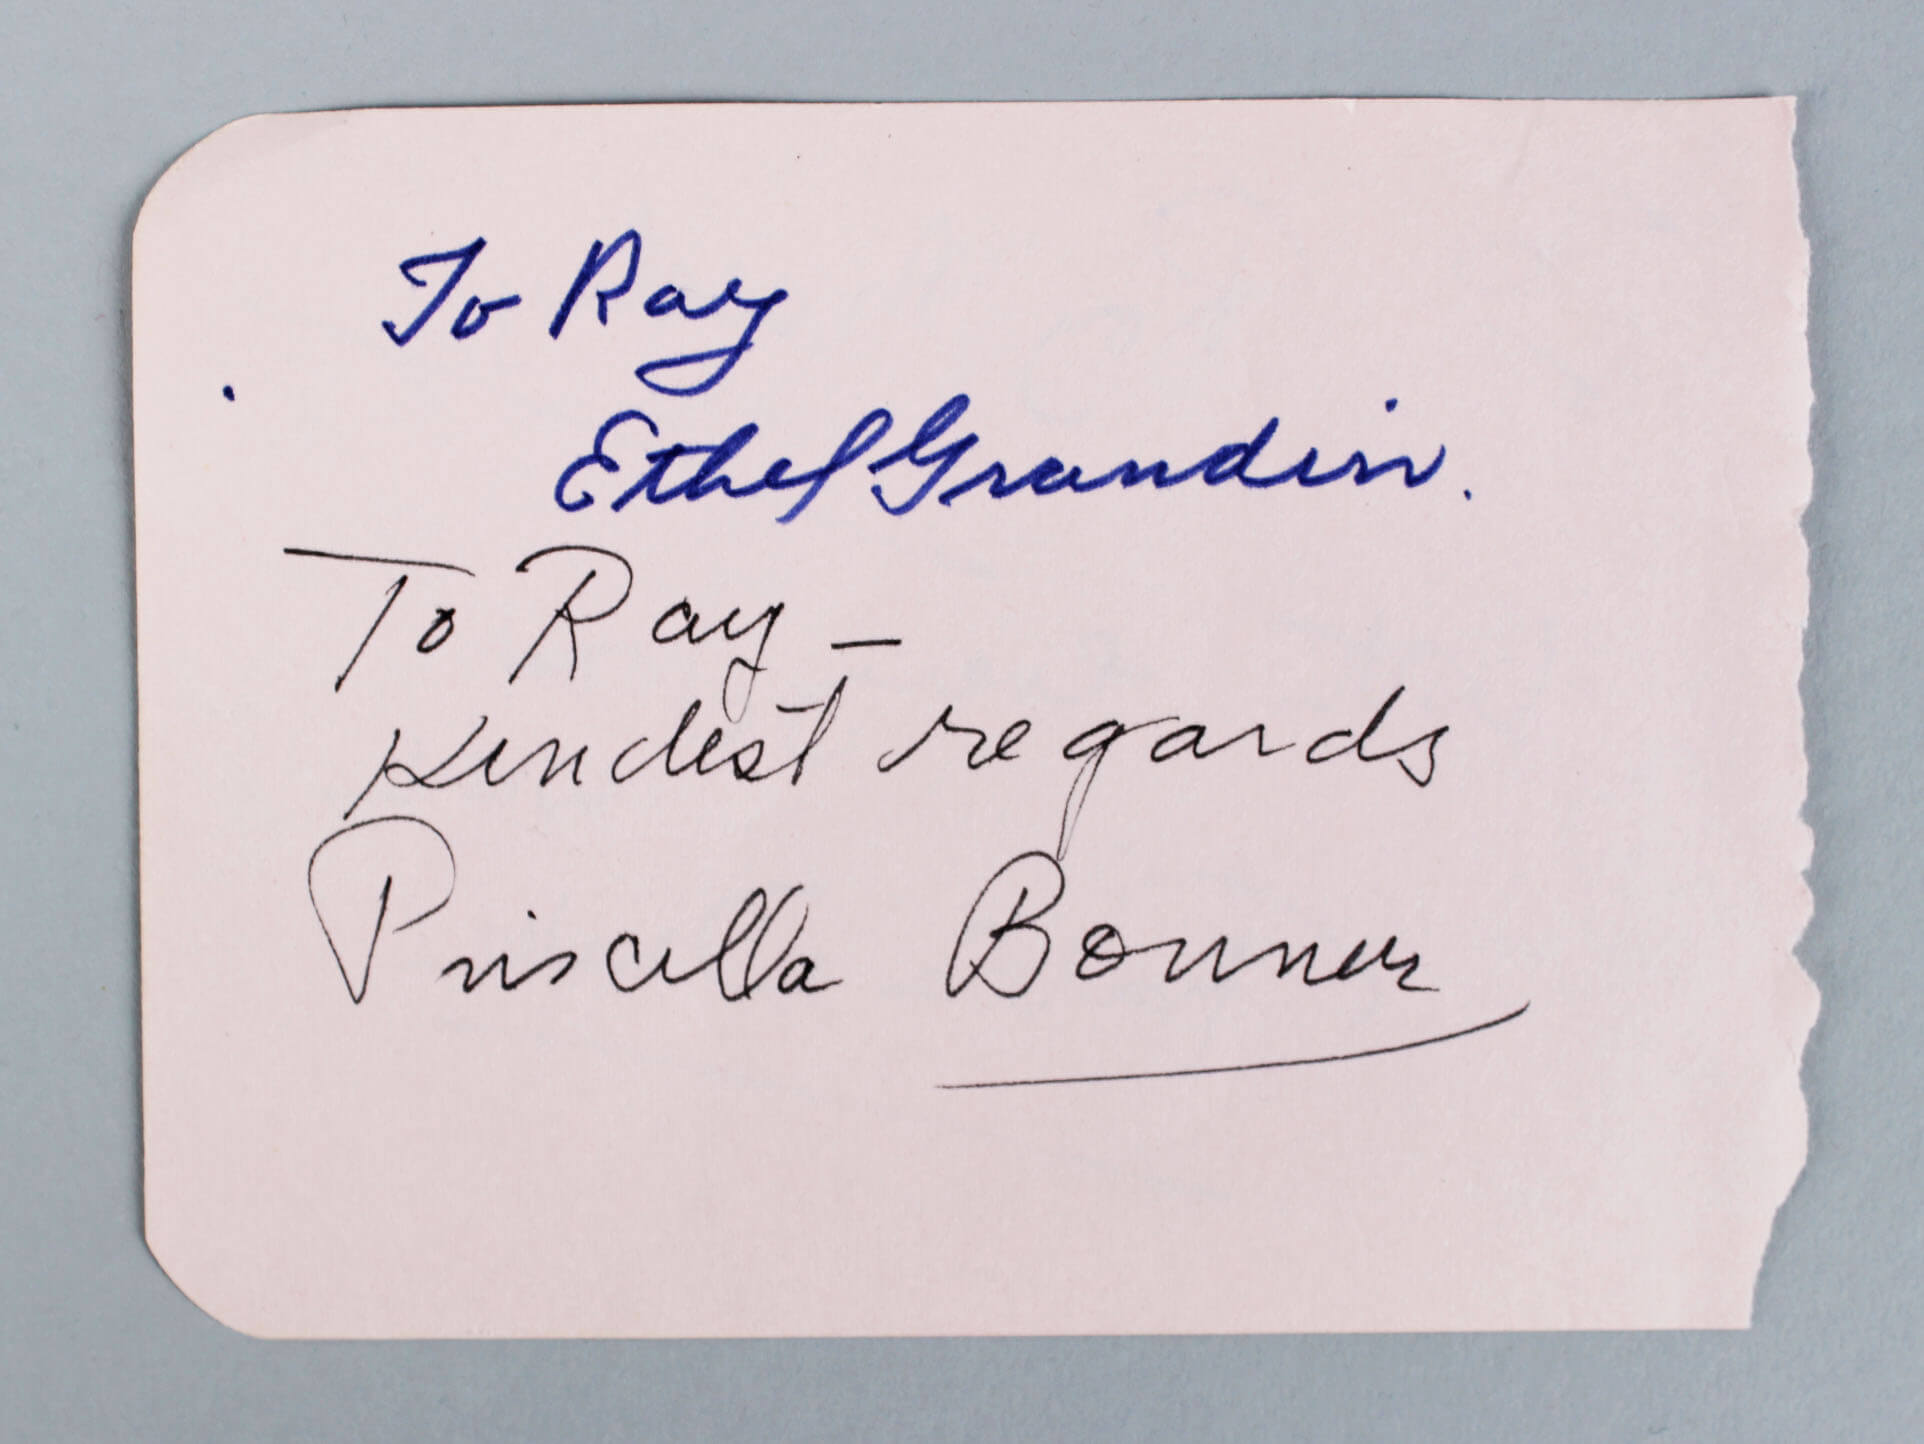 To Ray
Ethel Grandin.
To Ray –
Kindest regards
Priscilla Bonner